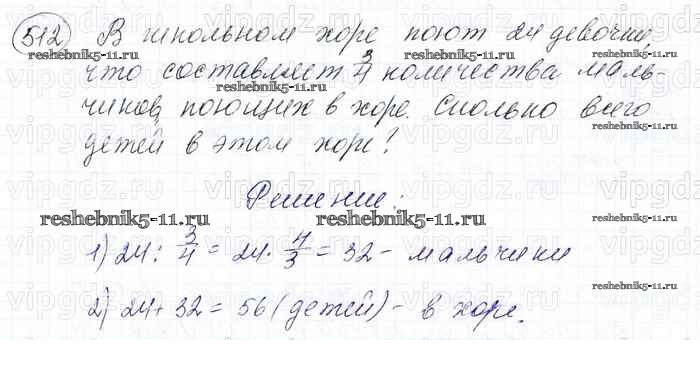 512 В школьном хоре поют 24 девочки,
что составляет 3/4 количества маль-
чиков, поющих в хоре. Сколько всего
детей в этом хоре?
Решение:
1) 24 : 3/4 = 24 · 4/3 = 32 - мальчики
2) 24 + 32 = 56 (детей) - в хоре.
reshebnik5-11.ru
reshebnik5-11.ru
reshebnik5-11.ru
reshebnik5-11.ru
reshebnik5-11.ru
reshebnik5-11.ru
reshebnik5-11.ru
reshebnik5-11.ru
vipgdz.ru vipgdz.ru vipgdz.ru vipgdz.ru